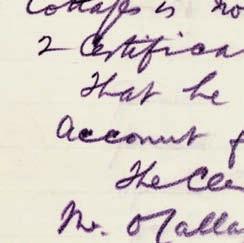 Cottages is no
2 Certifica
that he
Account f
The Cle
Mr. O'Malla